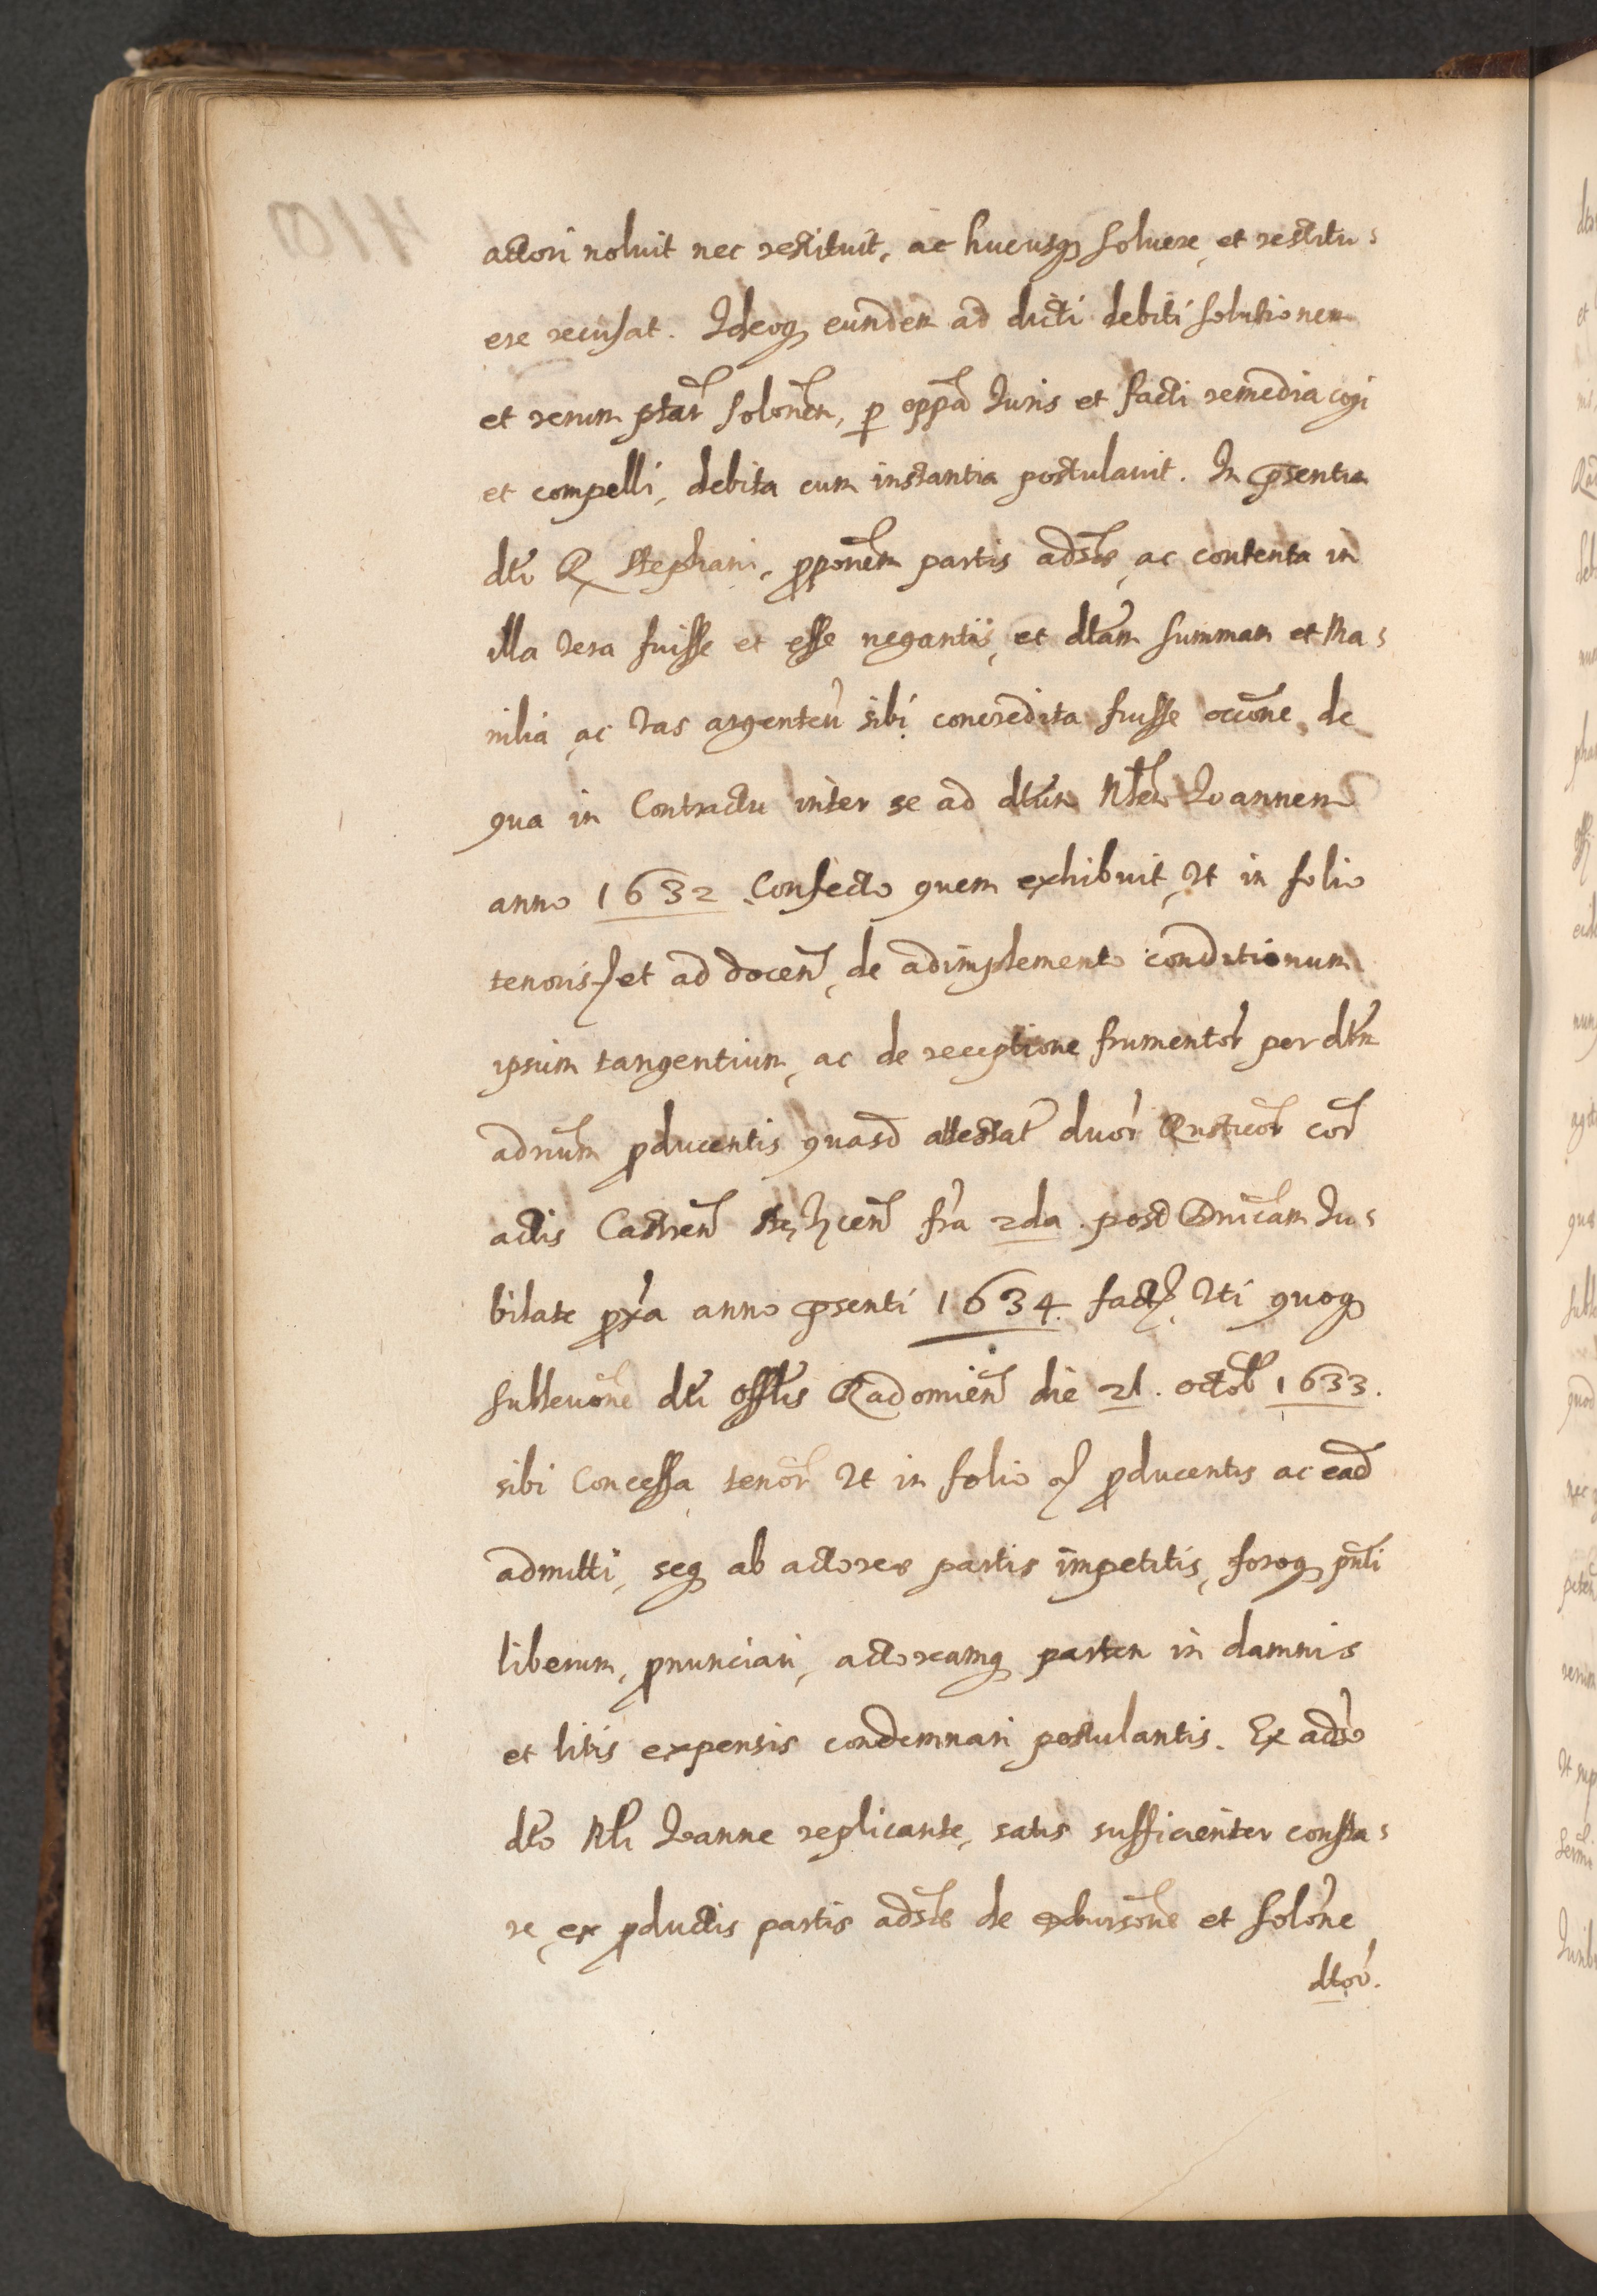 actori noluit nec restituit, ac hucusq soluere, et restitu
ere recusat. Ideoq eundem ad dicti debiti solutionem
et rerum ptar solonem, p oppa Iuris et facti remedia cogi
et compelli, debita cum instantia postulavit. In psentia
dti R Stephani, pponem partis adsae, ac contenta in
illa vera fuisse et esse negantis, et dtam summam et Mo
nilia, ac vas argenteu sibi concredita fuisse occone, de
qua in Contractu inter se ad dtum Nlem Ioannem
anno 1632 Confecto quem exhibuit, vt in folio
tenoris, et ad docen, de adimplemento conditionum
ipsum tangentium, ac de receptione frumentor per dtm
adnum pducentis quasd attestat duor Rusticor cor
actis Castren fra 2da. post Dnicam Iu
bilate pxa anno psenti 1634. fact, vti quoq
subleuone dti offlis Radomien die 21. octob 1633.
sibi Concessa tenor vt in folio pducentis ac ead
admitti, seq ab actorea partis impetitis, foroq pnti
liberum, pnunciari, actoreamq partem in damnis
et litis expensis condemnari postulantis. Ex adso
dto Nli Ioanne replicante, satis sufficienter consta
re, ex pductis partis adsae de exbursone et solone
dtor.